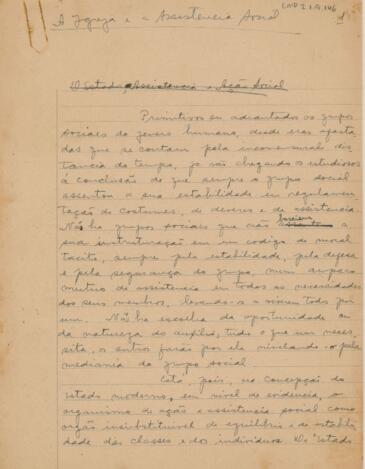 A Igreja e a Assistencia Social
1
O Estado, Assistencia e Ação Social
Primitivos ou adeantados os grupos
sociaes do genero humano, desde eras afasta
das que se contam pela incomensural dis-
tancia do tempo, ja vão chegando os estudiosos
á conclusão de que sempre o grupo social
assentou a sua estabilidade em regulamen-
tação de costumes, de deveres e de assistencia.
Não ha grupos sociaes que não baseiem a
sua instruturação em um codigo de moral
tacita, sempre pela estabilidade, pela defesa
e pela segurança do grupo, num amparo
mutuo de assistencia em todas as necessidades
dos seus membros, levando-os a viverem todos por
um. Não ha escolha da oportunidade ou
da natureza do auxilio; tudo o que um neces.
sita, os outros farão por ele nivelando-o pela
mediania do grupo social.
Está, pois, na concepção do
Estado moderno, em nivel de evidencia, o
organismo de ação e assistencia social como
orgão insubstituivel de equilibrio e de estabili
dade das classes e dos individuos. Do "Estado